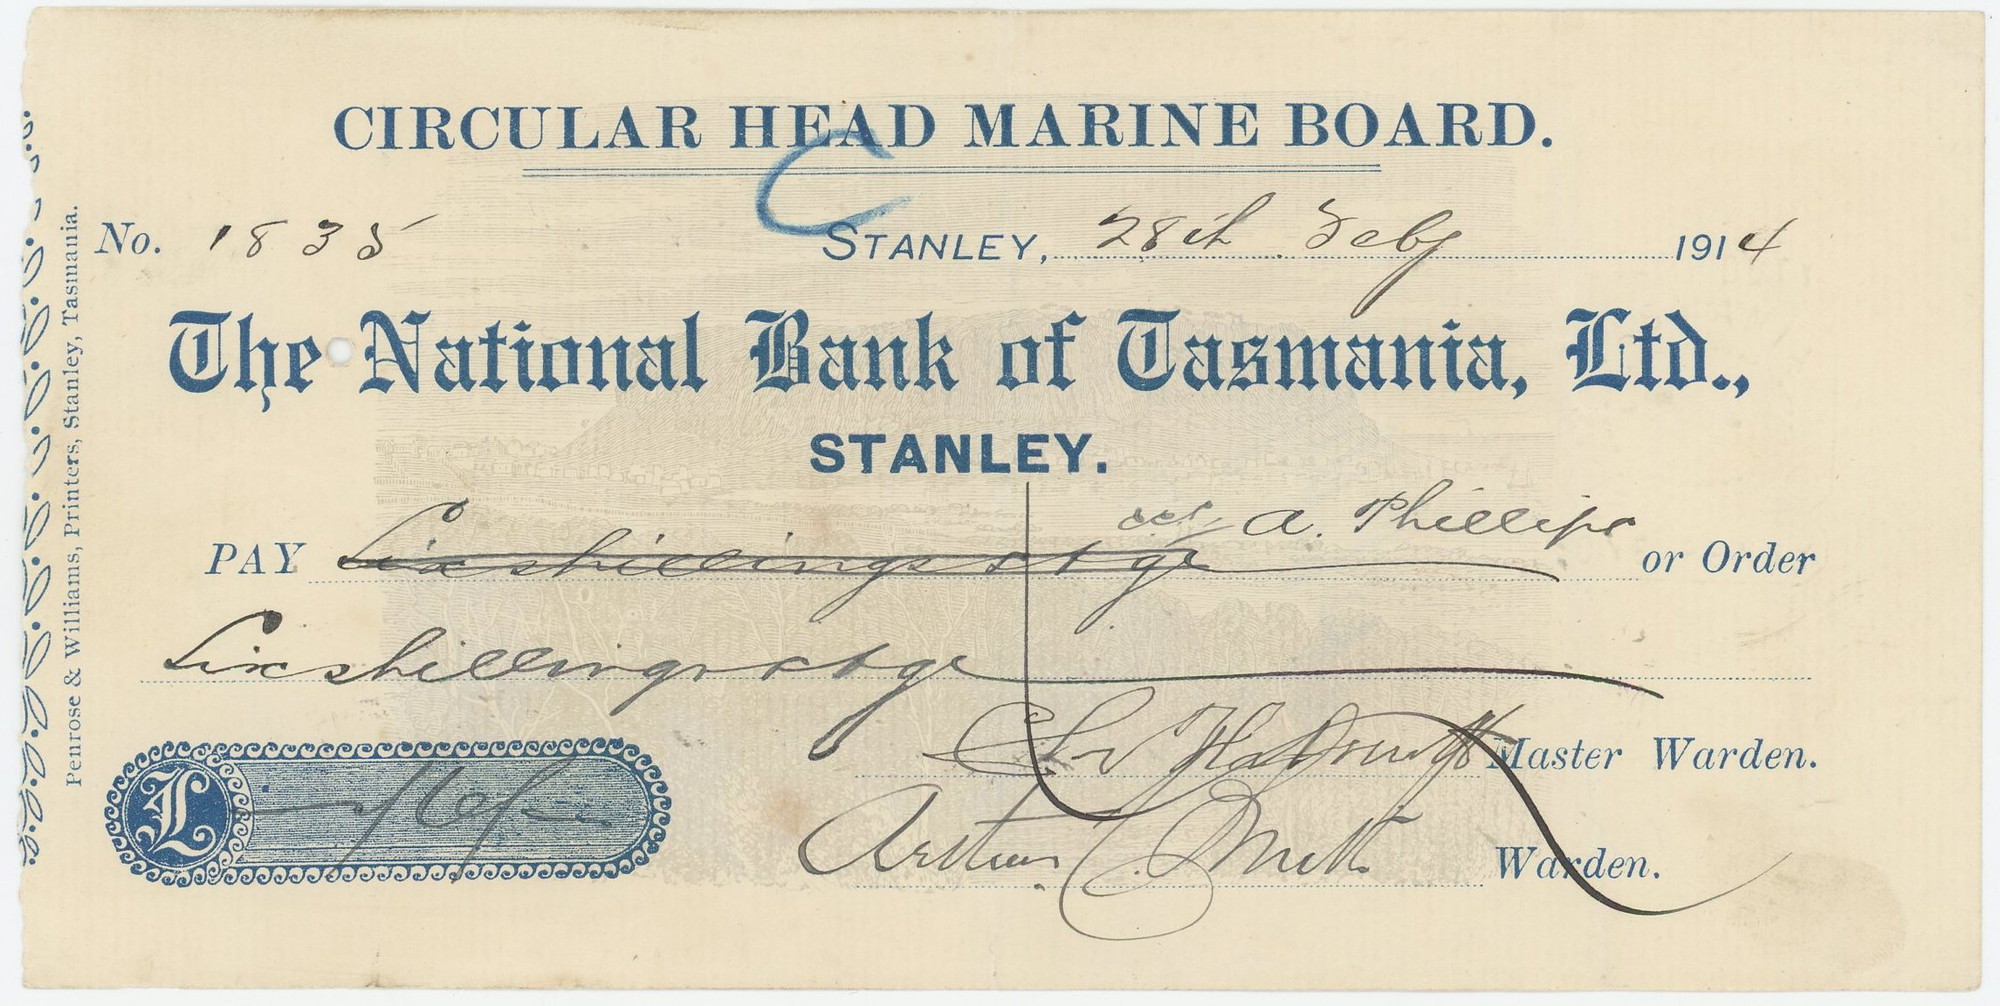 CIRCULAR HEAD MARINE BOARD.
C
No. 1835 STANLEY, 28th Feby 1914
The National Bank of Tasmania, Ltd.,
STANLEY.
A. Phillips
PAY Six shillings & + ge or Order
Six shillings
Master Warden.
£ 6/-
Arthur C. Smith Warden.
Penrose & Williams, Printers, Stanley, Tasmania.